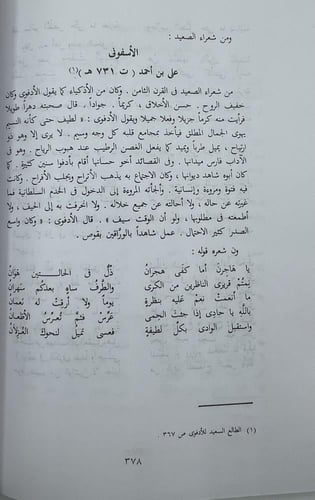 ومن شعراء الصعيد :
الأسفونى
على بن أحمد ( ت ٧٣١ هـ ) (١)
من شعراء الصعيد فى القرن الثامن . وكان من الأذكياء كما يقول الأدفوى وكان
خفيف الروح . حسن الأخلاق ، كريمًا . جوادًا . قال صحبته دهراً طويلا
فرأيت منه كرماً جزيلا وفعلا جميلا ويقول الأدفوى : « لطيف حتى كأنه النسيم
يهوى الجمال المطلق فيأخذ بمجامع قلبه كل وجه وسيم . لا يرى إلا وهو ذو
ارتياح ، يميل طرباً ويميد كما يفعل الغصن الرطيب عند هبوب الرياح . وهو فى
الآداب فارس ميدانها . وفى القصائد أخو حسانها أقام بأدفو سنين كثيرة . كما
كان أبوه شاهد ديوانها ، وكان الاجتماع به يذهب الأتراح ويجلب الأفراح . وكانت
فيه فتوة ومروءة وإنسانية . وألجأته المروءة إلى الدخول فى الخدم السلطانية فما
غيرته عن حاله ، ولا أحالته عن جميل خلاله . ولا انحرفت به إلى الحيف ، ولا
أطمعته فى مطلوبها ، ولو أن الوقت سيف » . قال الأدفوى : « وكان واسع
الصدر كثير الاحتمال . عمل شاهداً بالوراقين بقوص .
ن شعره قوله :
يا هاجرين أما كفى هجران ذل فى الحالتين هوان
يمنتم قريرى الناظرين من الكرى والطرف ساه بعدكم سهران
ما أنعمت نعم عليه بنظرة يوماً ولا رقت له نعمان
بالله يا حادى إذا جئت الحمى عرس فثم تعرس الأظعان
واستقبل الوادى بكل لطيفة فعسى تميل لنحوك الغزلان
(١) الطالع السعيد للأدفوى ص ٣٦٧ .
٣٧٨